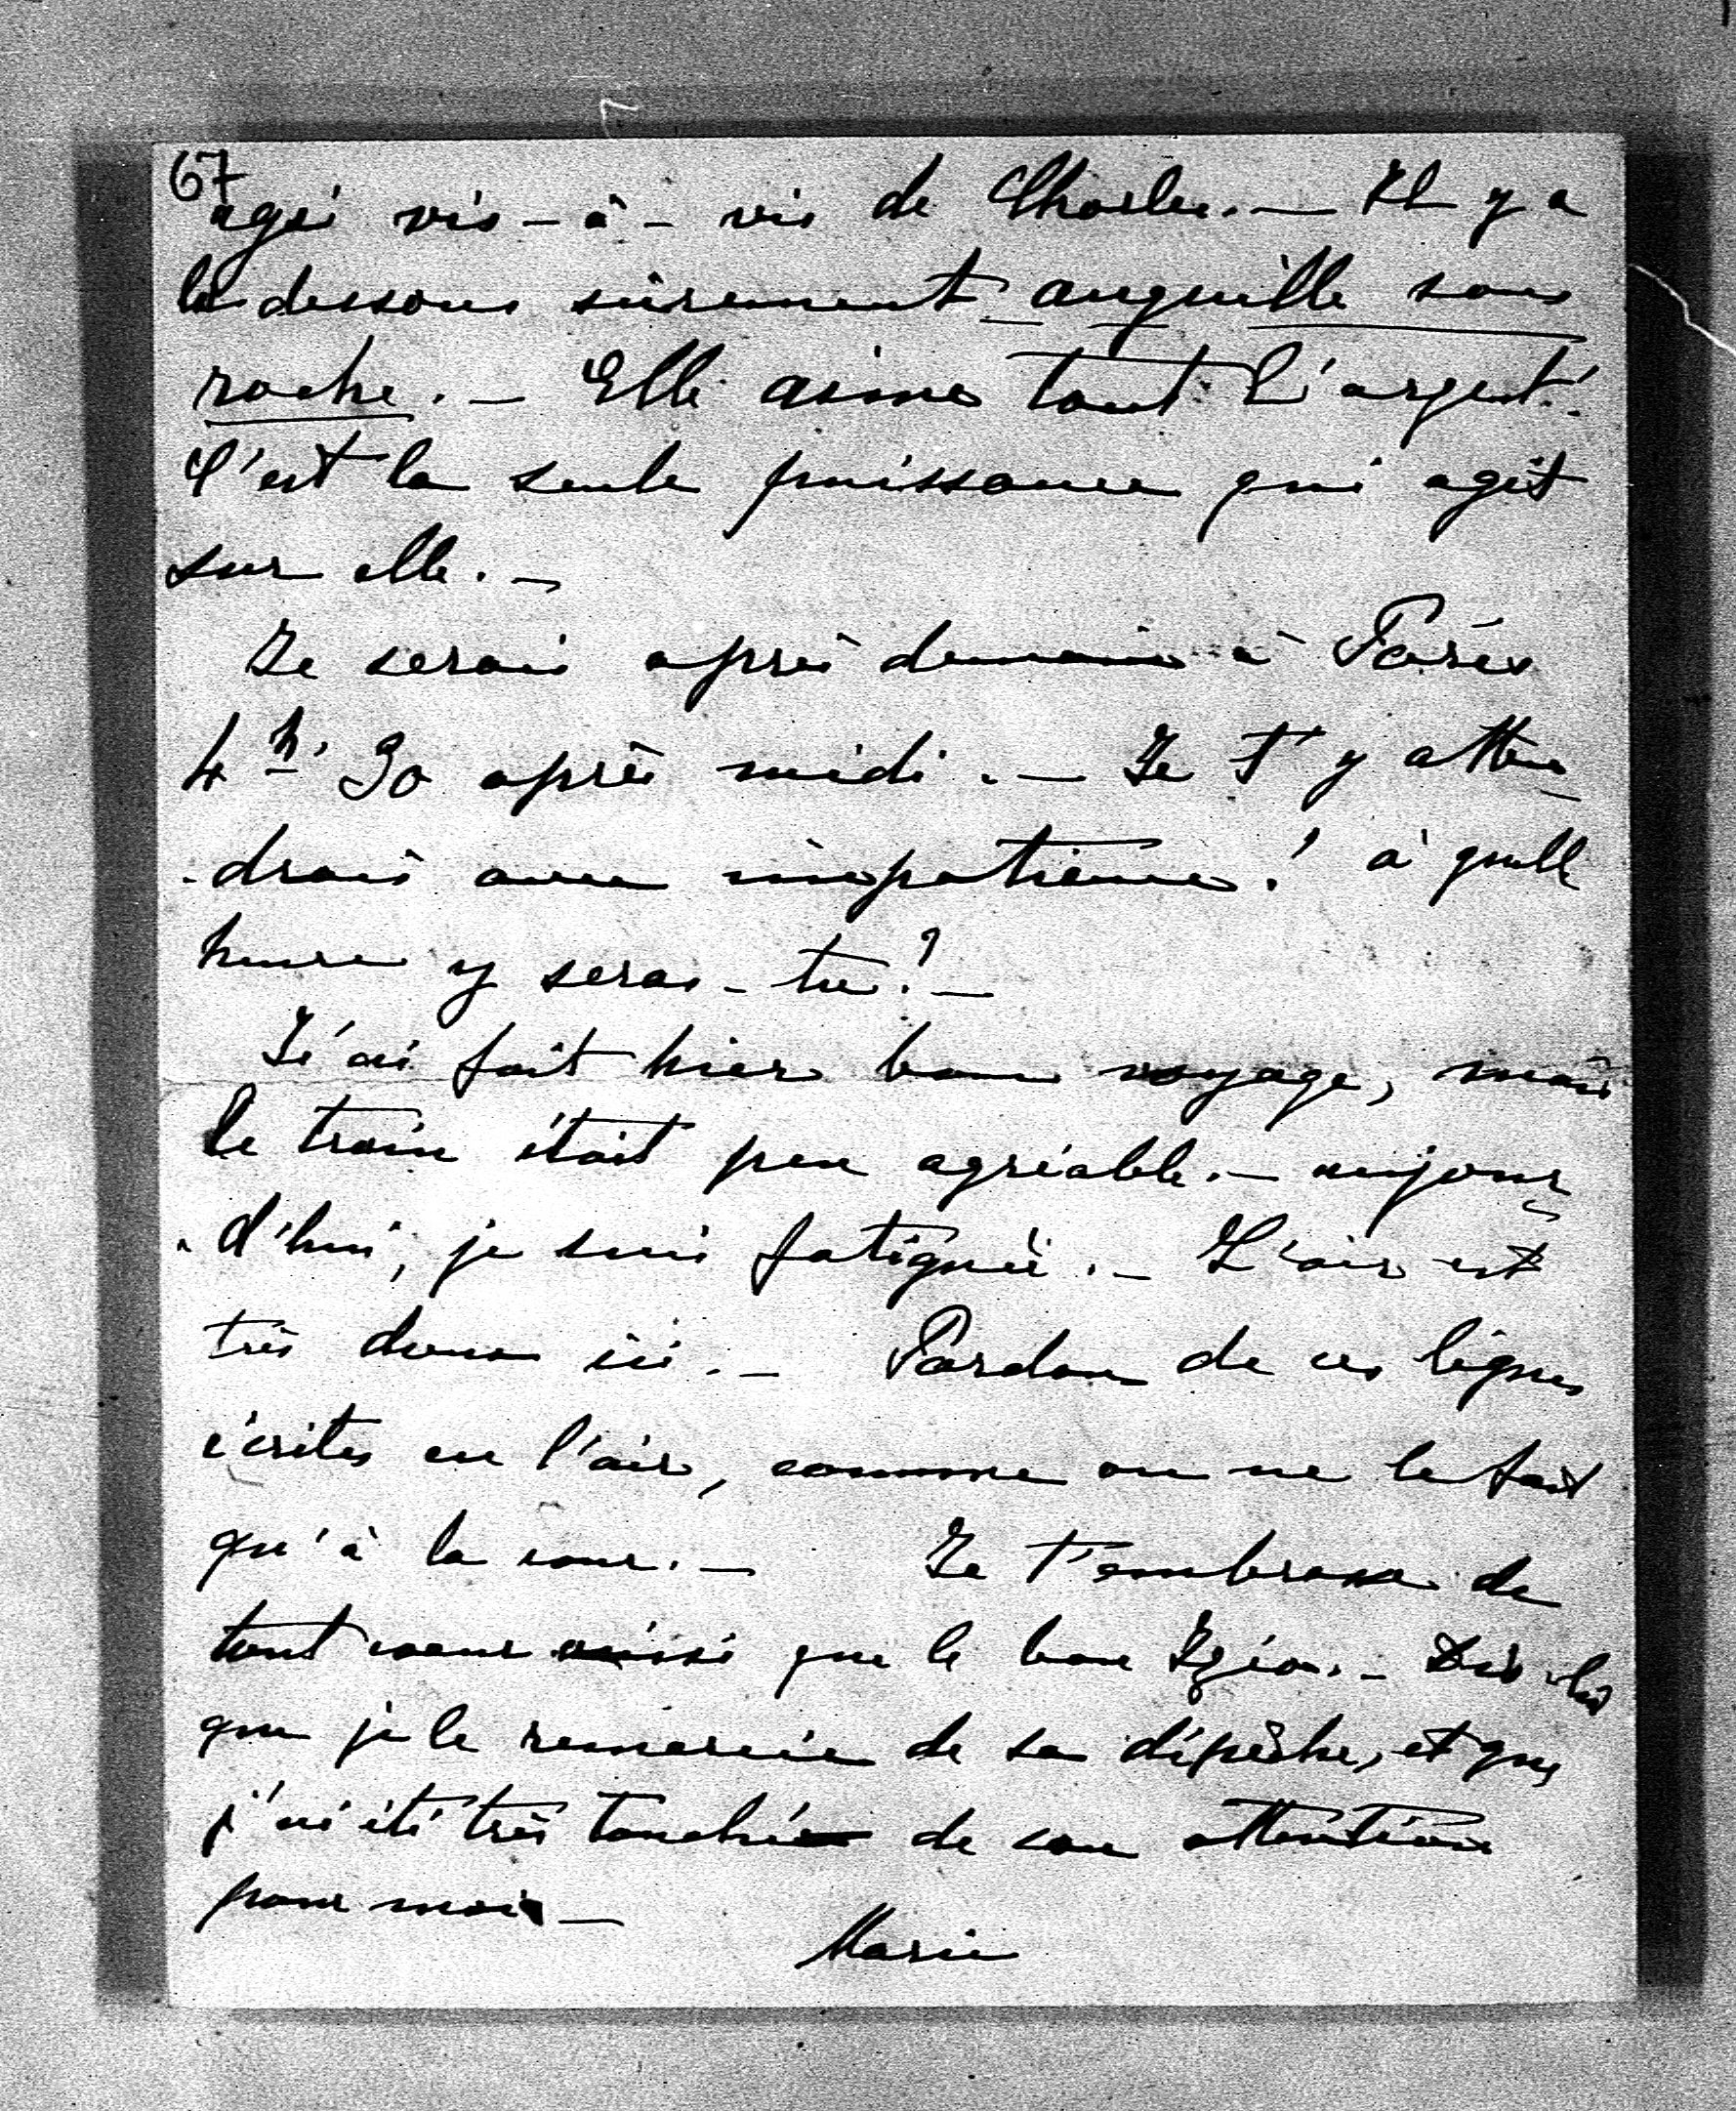 67
agri vis-à-vis de Charles. — Il y a
là dessous sûrement anguille sous
roche. — Elle aime tant L'argent!
C'est la seule puissance qui agit
sur elle. —
Je serai après demain à Paris
4 h. 30 après midi. — Je t'y atten
- drai avec impatience! à quelle
heure y seras-tu? —
J'ai fait hier bon voyage, mais
le train était peu agréable. — aujour
- d'hui, je suis fatiguée. — L'air est
très doux ici. — Pardon de ces lignes
écrites en l'air, comme on ne le fait
qu'à la cour. — Je t'embrasse de
tout coeur ainsi que le bon — Dis-lui
que je le remercie de sa dépêche, et que
j'ai été très touchée de son attention
pour moi —
Marie